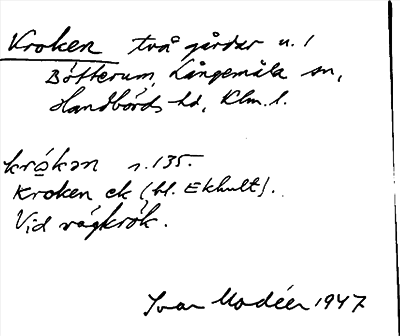 Kroken två gårdar u. 1
Bötterum, Långemåla sn,
Handbörds hd, Klm. l.
krókən s. 135.
Kroken ek (bl. Ekhult).
Vid vägkrök.
Ivar Modéer 1947